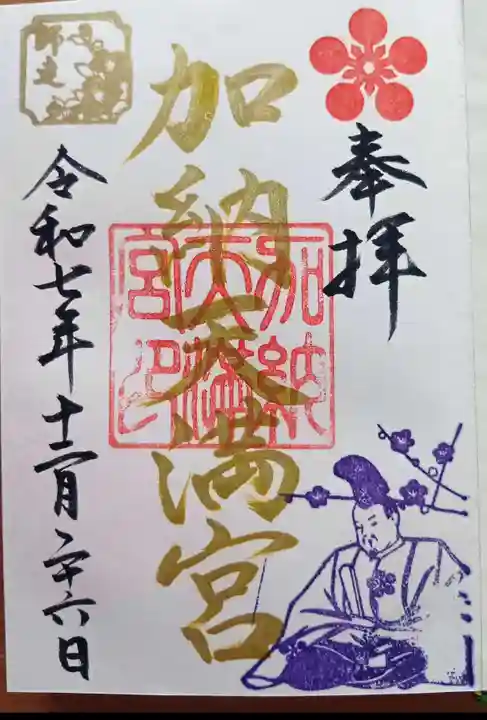 奉拝
加納天満宮
加納天満宮印
師走
令和七年十二月二十六日